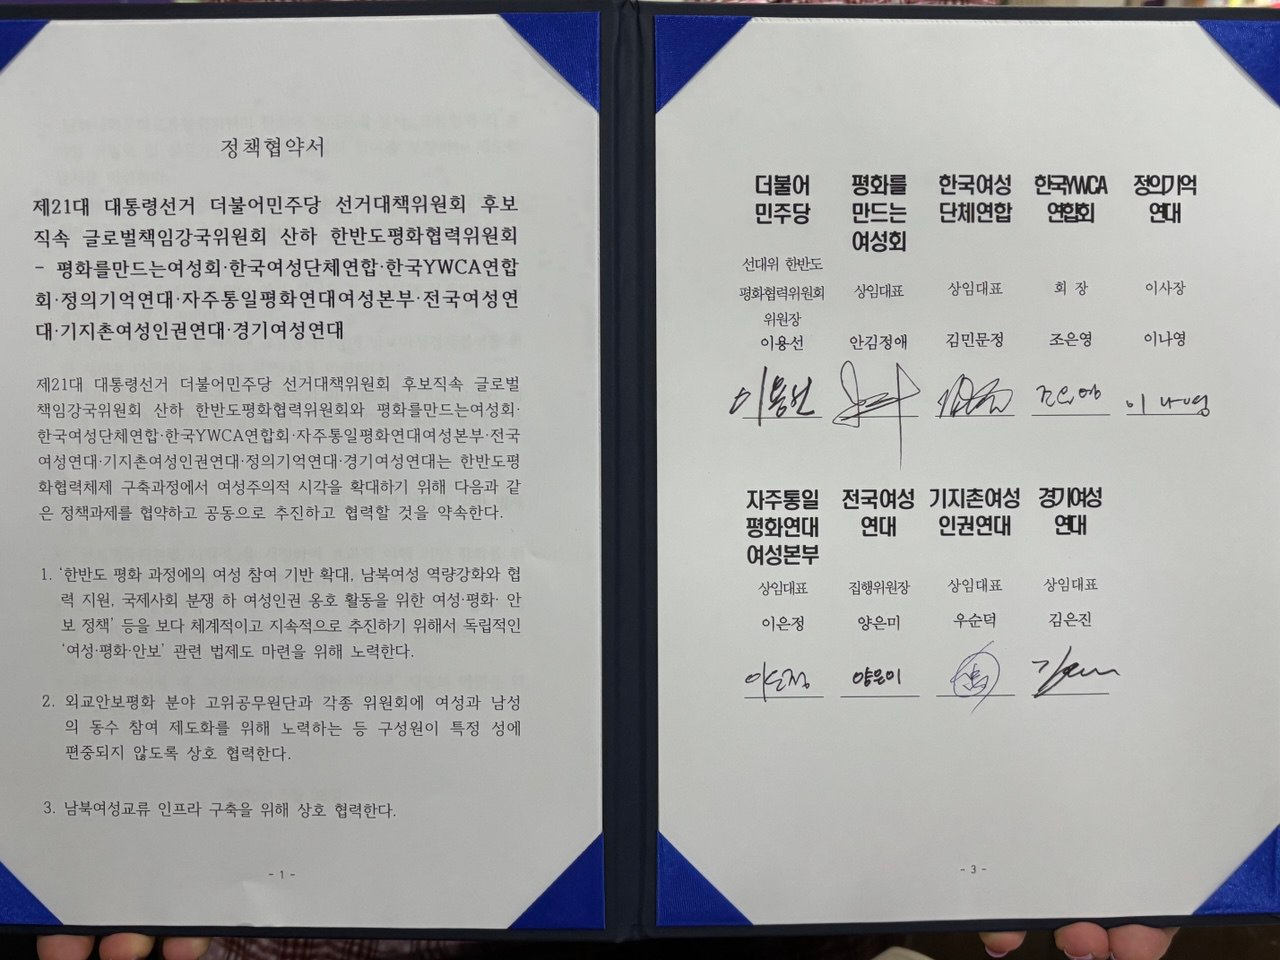 정책협약서
제21대 대통령선거 더불어민주당 선거대책위원회 후보
직속 글로벌책임강국위원회 산하 한반도평화협력위원회
- 평화를만드는여성회·한국여성단체연합·한국YWCA연합
회·정의기억연대·자주통일평화연대여성본부·전국여성연
대·기지촌여성인권연대·경기여성연대
제21대 대통령선거 더불어민주당 선거대책위원회 후보직속 글로벌
책임강국위원회 산하 한반도평화협력위원회와 평화를만드는여성회·
한국여성단체연합·한국YWCA연합회·자주통일평화연대여성본부·전국
여성연대·기지촌여성인권연대·정의기억연대·경기여성연대는 한반도평
화협력체제 구축과정에서 여성주의적 시각을 확대하기 위해 다음과 같
은 정책과제를 협약하고 공동으로 추진하고 협력할 것을 약속한다.
1. '한반도 평화 과정에의 여성 참여 기반 확대, 남북여성 역량강화와 협
력 지원, 국제사회 분쟁 하 여성인권 옹호 활동을 위한 여성·평화· 안
보 정책' 등을 보다 체계적이고 지속적으로 추진하기 위해서 독립적인
'여성·평화·안보' 관련 법제도 마련을 위해 노력한다.
2. 외교안보평화 분야 고위공무원단과 각종 위원회에 여성과 남성
의 동수 참여 제도화를 위해 노력하는 등 구성원이 특정 성에
편중되지 않도록 상호 협력한다.
3. 남북여성교류 인프라 구축을 위해 상호 협력한다.
- 1 -
더불어 평화를 한국여성 한국YWCA 정의기억
민주당 만드는 단체연합 연합회 연대
여성회
선대위 한반도
평화협력위원회 상임대표 상임대표 회 장 이사장
위원장
이용선 안김정애 김민문정 조은영 이나영
이용선 조은영 이나영
자주통일 전국여성 기지촌여성 경기여성
평화연대 연대 인권연대 연대
여성본부
상임대표 집행위원장 상임대표 상임대표
이은정 양은미 우순덕 김은진
이은정 양은미
- 3 -